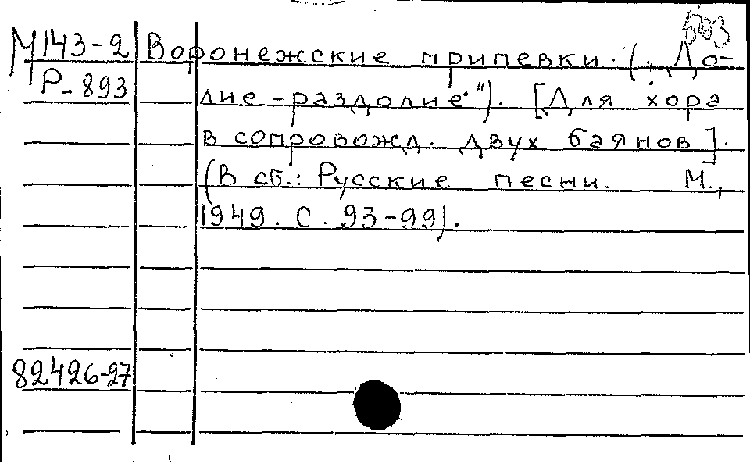 М143-2
Р-893
Воронежские припевки. („До-
лие-раздолие"). [Для хора
в сопровожд. двух баянов].
(В сб.: Русские песни. М.,
1949. С. 93-99).
82426-27